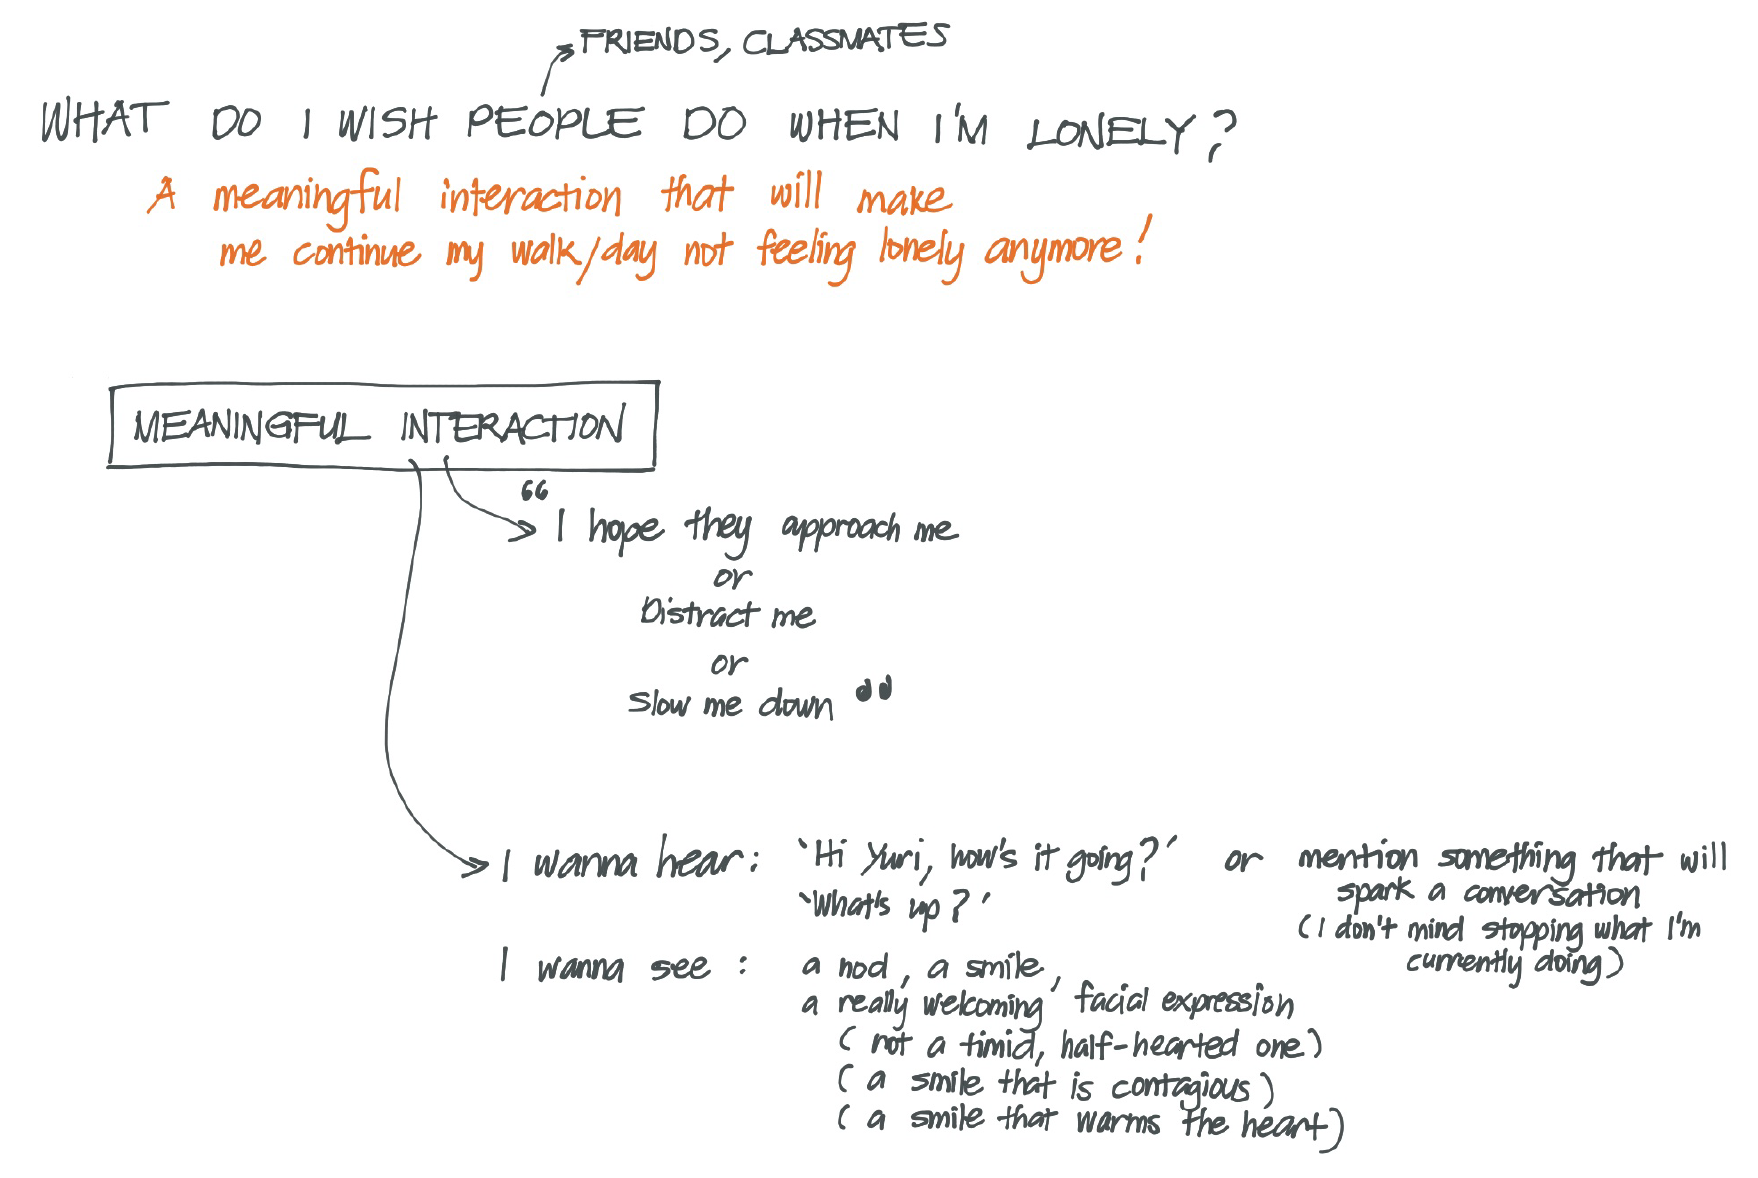 FRIENDS, CLASSMATES
WHAT DO I WISH PEOPLE DO WHEN I'M LONELY?
A meaningful interaction that will make
me continue my walk/day not feeling lonely anymore!
MEANINGFUL INTERACTION
“I hope they approach me
or
Distract me
or
Slow me down”
I wanna hear: ‘Hi Yuri, how's it going?’ or mention something that will
spark a conversation
‘What's up?’
(I don't mind stopping what I'm
currently doing)
I wanna see: a nod, a smile,
a really ‘welcoming’ facial expression
(not a timid, half-hearted one)
(a smile that is contagious)
(a smile that warms the heart)